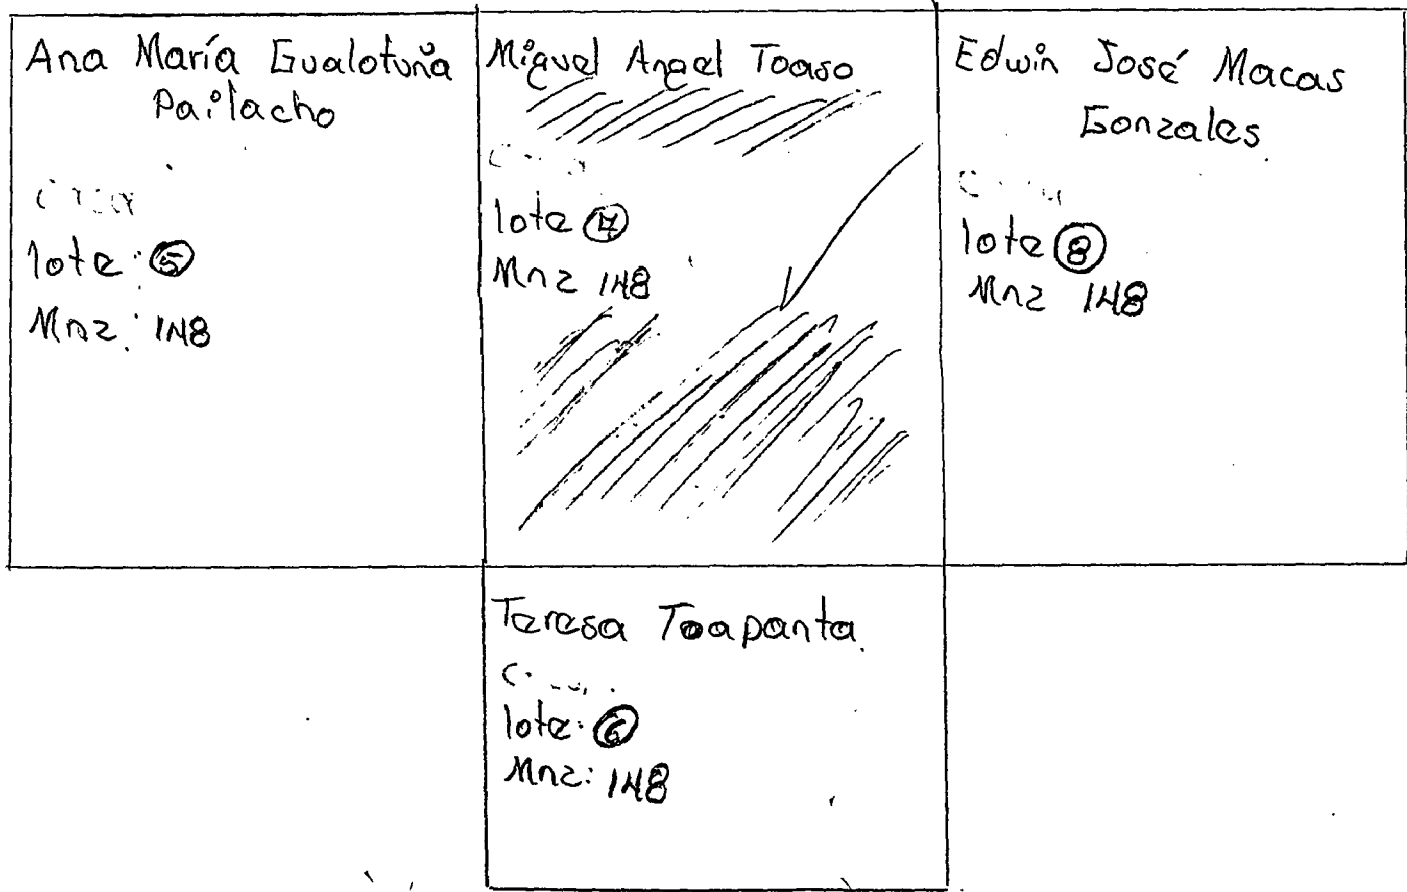 Ana María Gualotuña
Pailacho
lote: 5
Mnz: 148
Miguel Angel Toaso
lote 7
Mnz 148
Edwin José Macas
Gonzales
lote 8
Mnz 148
Teresa Toapanta
lote: 6
Mnz: 148